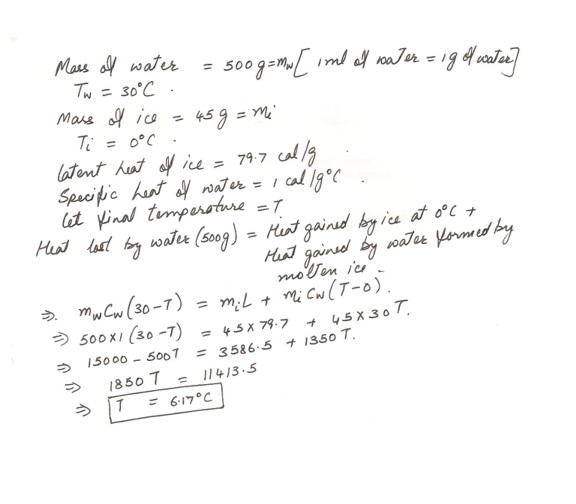 Mass of water = 500g = mw [ 1ml of water = 1g of water]
Tw = 30°C .
Mass of ice = 45g = mi
Ti = 0°C .
Latent heat of ice = 79.7 cal/g
Specific heat of water = 1 cal/g°C .
Let final temperature = T
Heat lost by water (500g) = Heat gained by ice at 0°C +
Heat gained by water formed by
molten ice -
⇒. mwCw(30-T) = miL + miCw(T-0).
⇒ 500x1(30-T) = 45x79.7 + 45x30T.
⇒ 15000 - 500T = 3586.5 + 1350T.
⇒ 1850T = 11413.5
⇒ T = 6.17°C